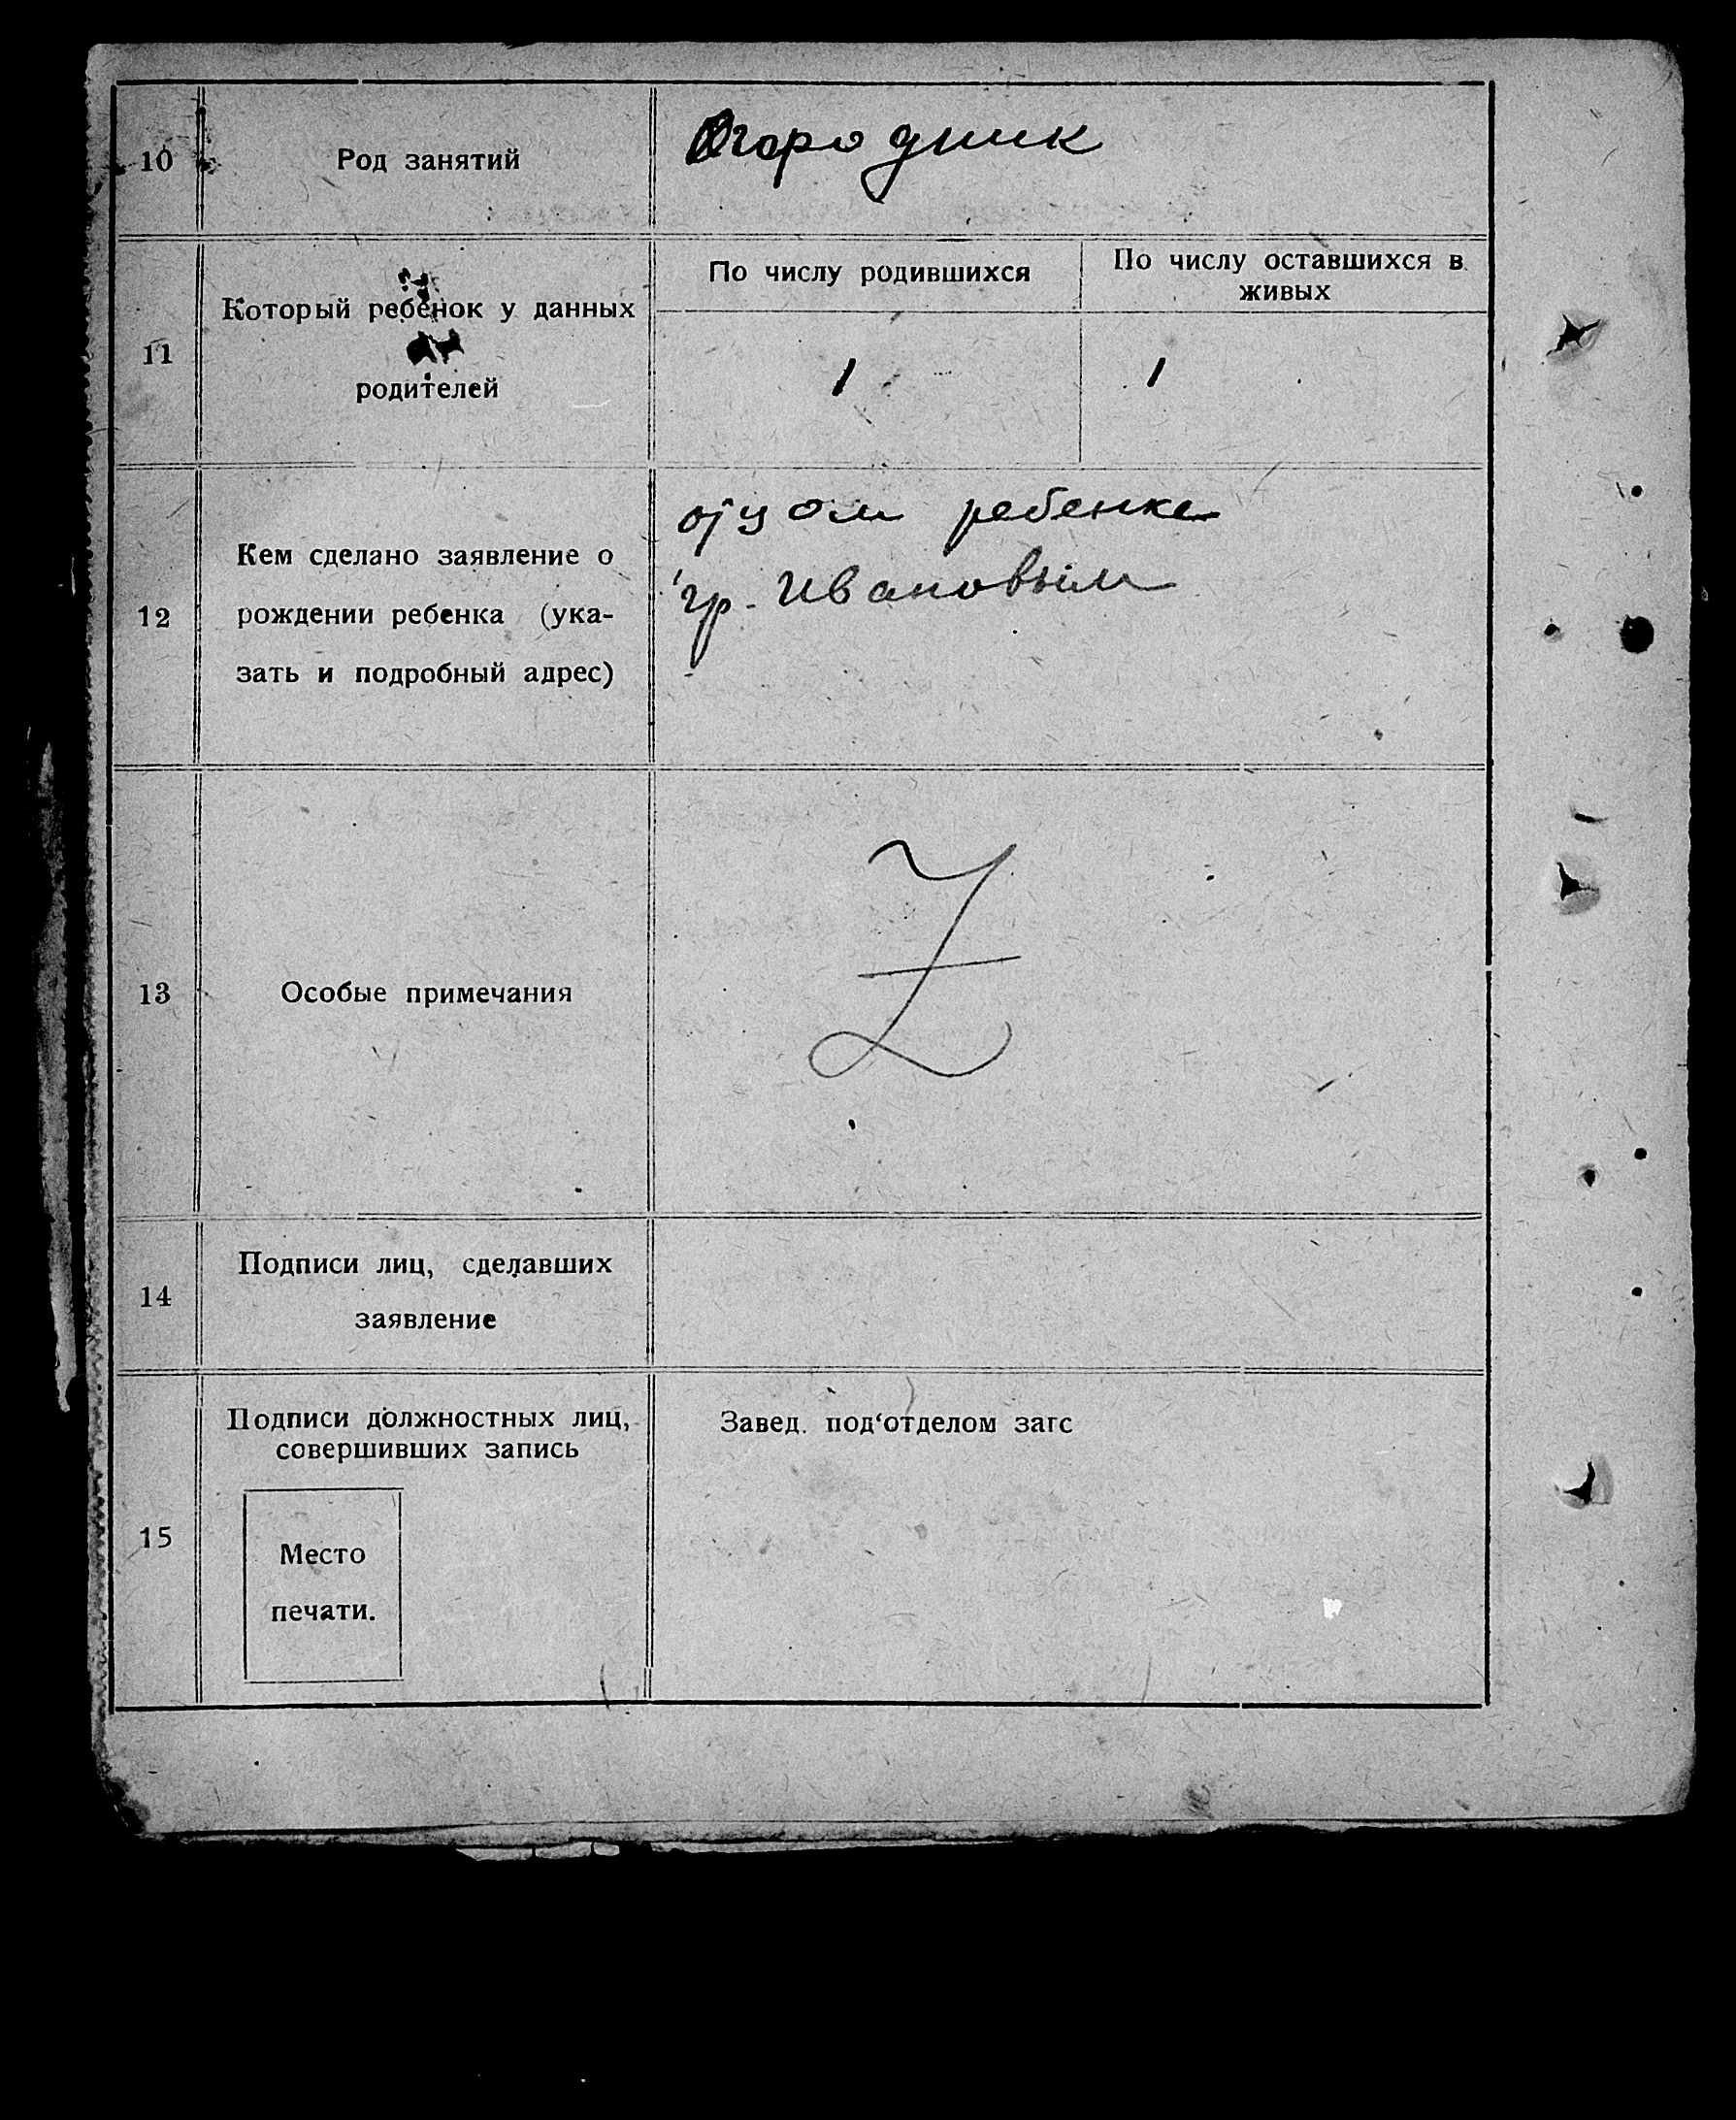 10
Род занятий
Огородник
11
Который ребенок у данных
родителей
По числу родившихся
По числу оставшихся в
живых
1
1
12
Кем сделано заявление о
рождении ребенка (ука-
зать и подробный адрес)
отцом ребенка
гр. Ивановым
13
Особые примечания
Z
14
Подписи лиц, сделавших
заявление
15
Подписи должностных лиц,
совершивших запись
Место
печати.
Завед. под‘отделом загс